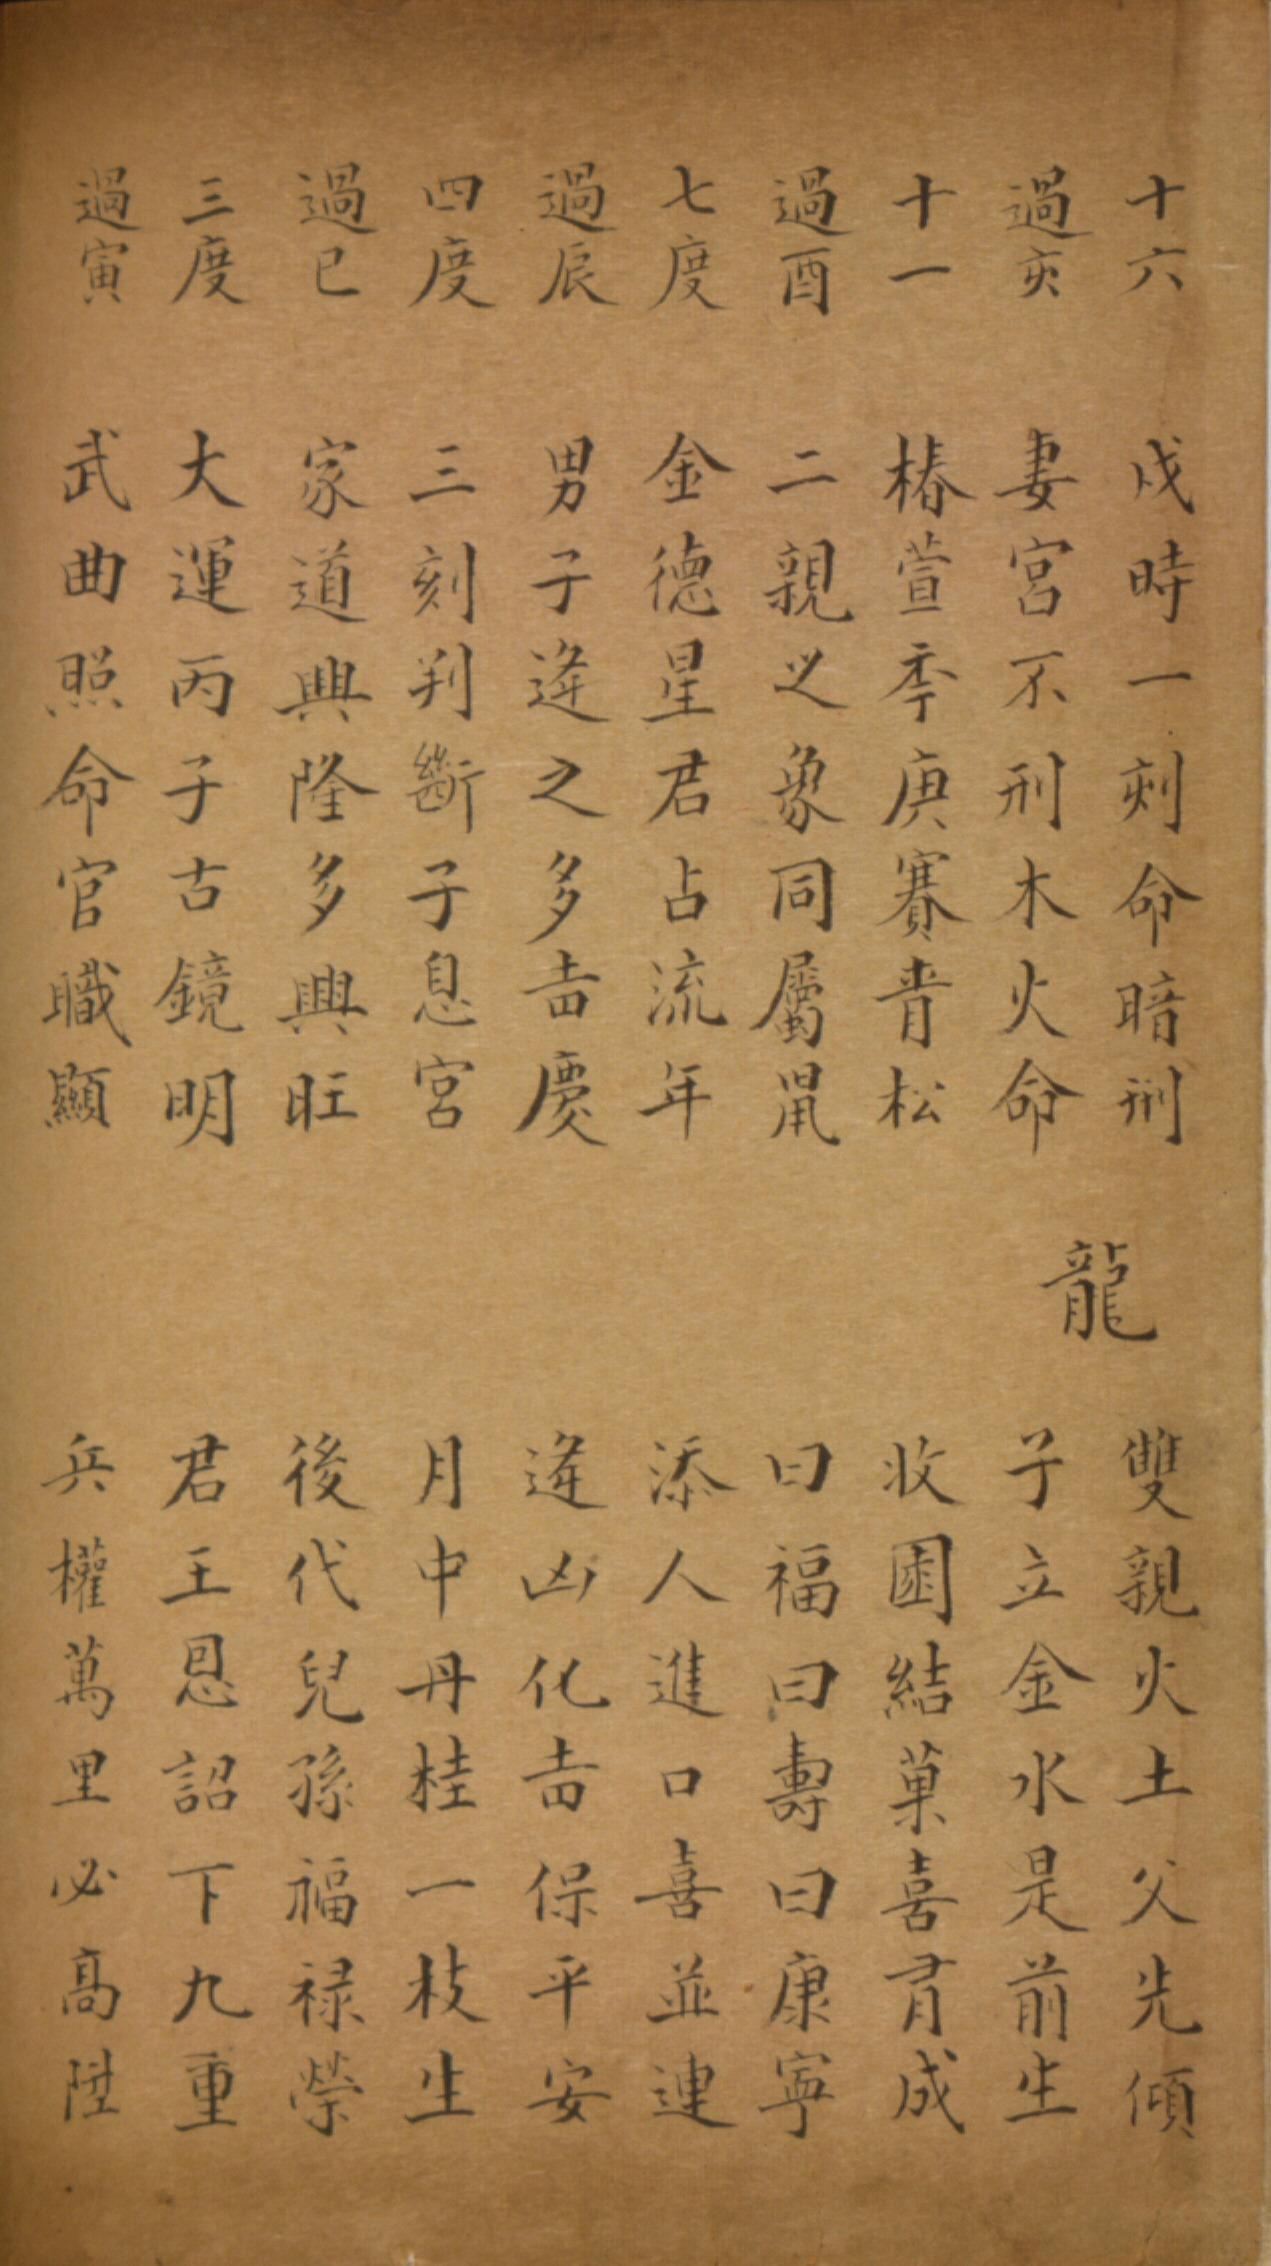 十六 戌時一刻命暗刑 雙親火土父先傾
過亥 妻宮不刑木火命 子立金水是前生
龍
十一 椿萱季庚賽青松 收園結菓喜有成
過酉 二親之象同屬鼠 曰福曰壽曰康寧
七度 金德星君占流年 添人進口喜並連
過辰 男子逢之多吉慶 逢凶化吉保平安
四度 三刻判斷子息宮 月中丹桂一枝生
過巳 家道興隆多興旺 後代兒孫福祿榮
三度 大運丙子古鏡明 君王恩詔下九重
過寅 武曲照命官職顯 兵權萬里必高陞